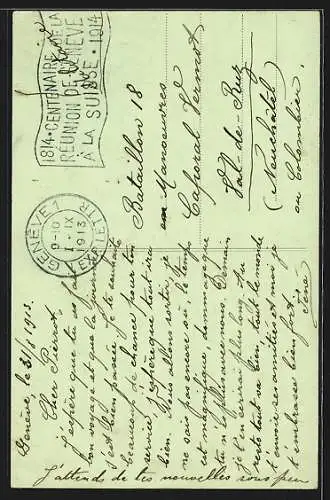 1814 • CENTENAIRE DE LA
RÉUNION DE GENÈVE
À LA SUISSE • 1914
GENÈVE 1
9-10
1-IX
1913
EXP. LETTR.
Bataillon 18
en Manoeuvres
Caporal Vermot
Val-de-Ruz
(Neuchâtel)
ou Colombier.
Genève le 31/8 1913.
Cher Pierrot,
J'espère que tu as fait
bon voyage et que la journée
s'est bien passée, je te souhaite
beaucoup de chance pour ton
service, j'espère que tout ira
bien. Nous allons sortir, je
ne sais pas encore où, le temps
est magnifique, dommage que
tu ne sois pas avec nous. Demain
je t'en écrirai plus long et du
reste tout va bien, tout le monde
t'envoie ses amitiés et moi je
t'embrasse bien fort.
J'attends de tes nouvelles sous peu